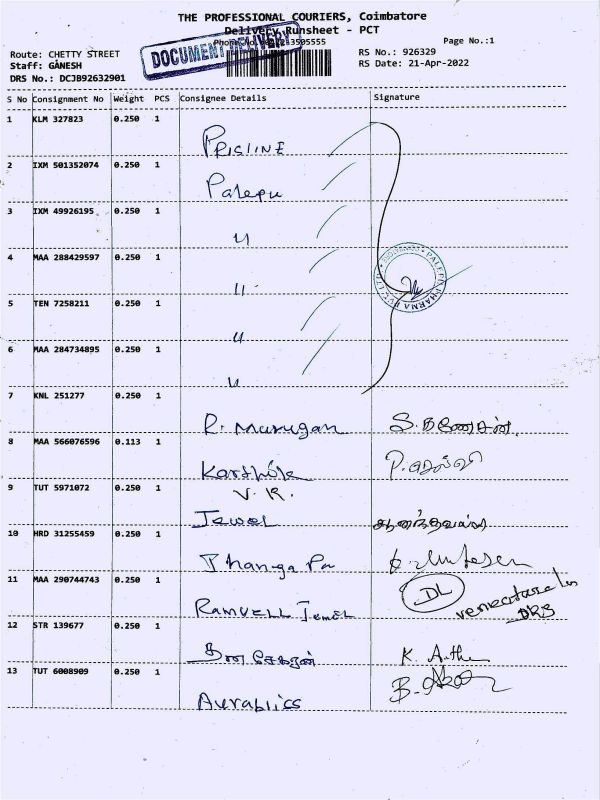 THE PROFESSIONAL COURIERS, Coimbatore
Delivery Runsheet - PCT
DOCUMENT DELIVERY
Page No.:1
Route: CHETTY STREET
RS No.: 926329
Staff: GANESH
RS Date: 21-Apr-2022
DRS No.: DCJB92632901
S No Consignment No Weight PCS Consignee Details Signature
1 KLM 327823 0.250 1 PRISLINE
2 IXM 501352074 0.250 1 Palepu
3 IXM 49926195 0.250 1 u
4 MAA 288429597 0.250 1 u
5 TEN 7258211 0.250 1 u
6 MAA 284734895 0.250 1 u
PALEPU PHARMA PVT LTD
7 KNL 251277 0.250 1 R. Murugan S. கணேசன்.
8 MAA 566076596 0.113 1 Karthik P. செல்வி
V. R.
9 TUT 5971072 0.250 1 Jewel
10 HRD 31255459 0.250 1 Thanga Pa
11 MAA 290744743 0.250 1 RAMVELL Jewel DL
12 STR 139677 0.250 1 தனசேகரன்
13 TUT 6008909 0.250 1 Aurabliss